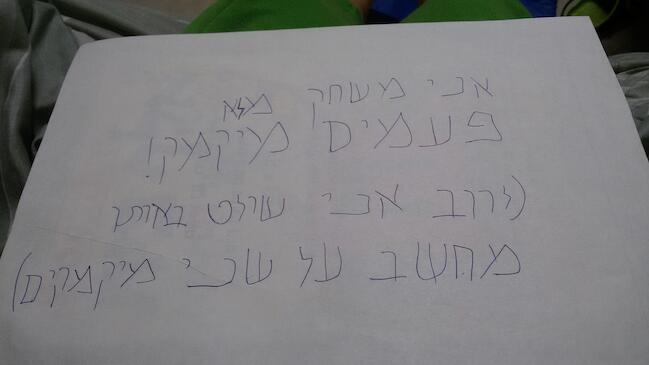 אני משחק מלא
פעמים מיקמק!
(לרוב אני שולט באותו
מחשב על שני מיקמקים)